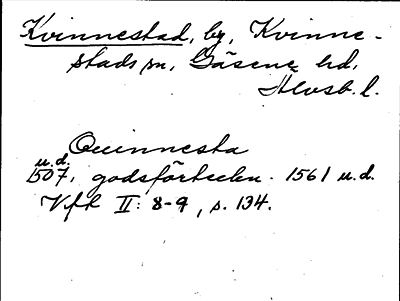 Kvinnestad, by, Kvinne-
stads sn, Gäsene hd,
Älvsb. l.
Quinnesta
u.d.
1507, godsförteckn. 1561 u.d.
Vft II: 8-9, s. 134.